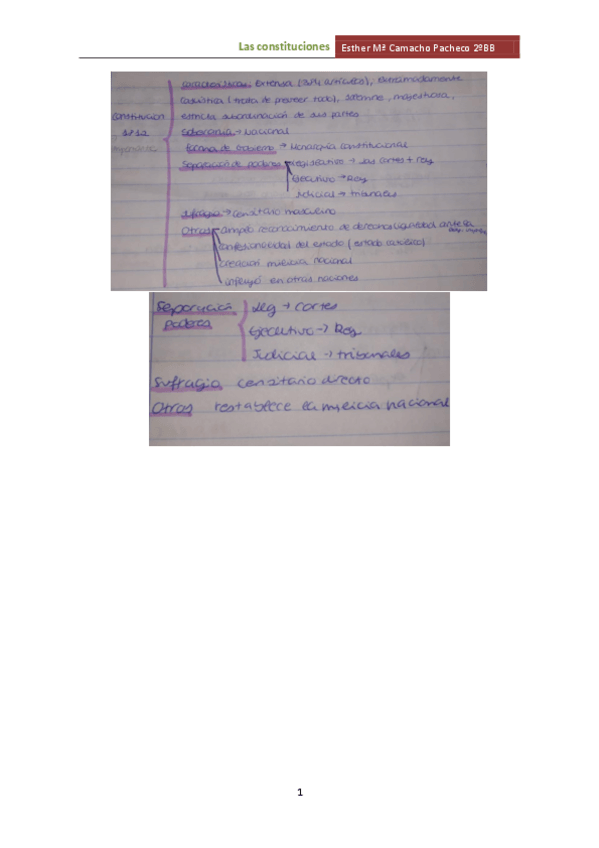 Las constituciones Esther Mª Camacho Pacheco 2ºBB
características: Extensa ( artículos), extremadamente
casuística (trata de preveer todo), solemne, majestuosa,
estricta subordinación de sus partes
Constitución
Soberanía → Nacional
Forma de Gobierno → Monarquía constitucional
Separación de poderes Legislativo → las cortes + rey
Ejecutivo → Rey
Judicial → tribunales
Sufragio → censitario masculino
Otros amplio reconocimiento de derechos igualdad ante la
confesionalidad del estado (estado católico)
creación milicia nacional
influyó en otras naciones
Separación Leg → cortes
poderes Ejecutivo → Rey
Judicial → tribunales
Sufragio censitario directo
Otros restablece la milicia nacional
1